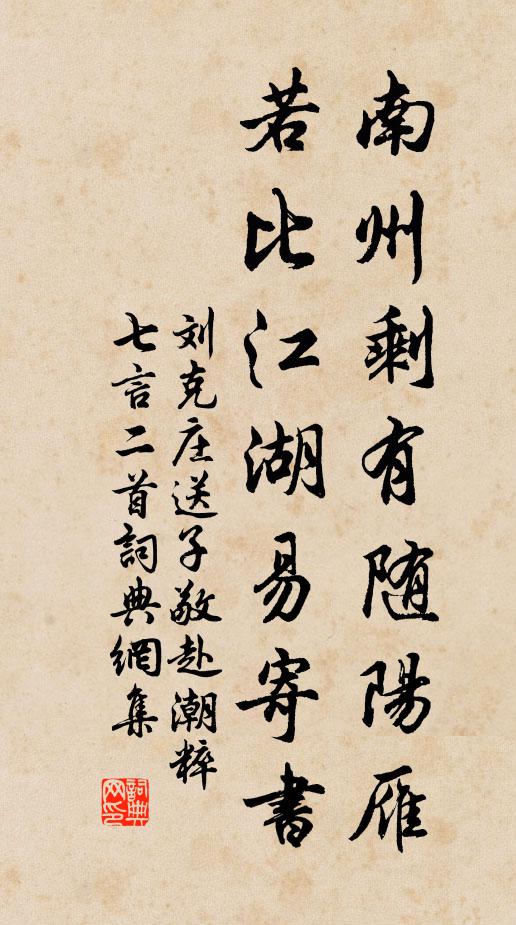 南州剩有随陽雁
若比江湖易寄書
刘克庄送子敬赴潮粹
七言二首詞典網集
詞典
网印